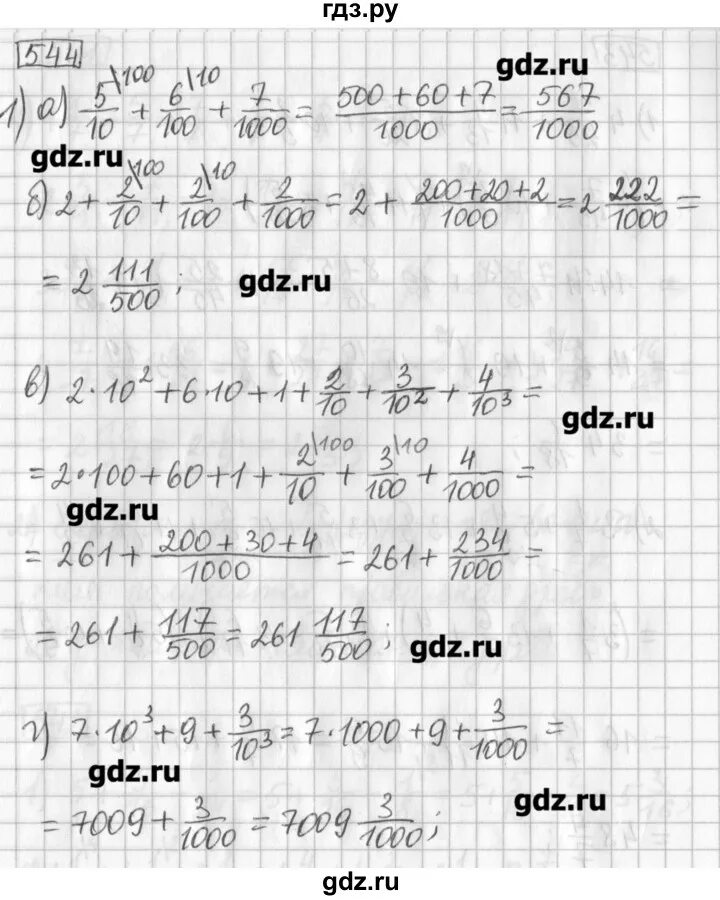 гдз.ру
544
gdz.ru
1) а) 5/10 \100 + 6/100 \10 + 7/1000 = (500 + 60 + 7)/1000 = 567/1000
gdz.ru
б) 2 + 2/10 \100 + 2/100 \10 + 2/1000 = 2 + (200 + 20 + 2)/1000 = 2 222/1000 =
= 2 111/500 ;
gdz.ru
в) 2·10² + 6·10 + 1 + 2/10 + 3/10² + 4/10³ =
gdz.ru
= 2·100 + 60 + 1 + 2/10 \100 + 3/100 \10 + 4/1000 =
gdz.ru
= 261 + (200 + 30 + 4)/1000 = 261 + 234/1000 =
= 261 + 117/500 = 261 117/500 ;
gdz.ru
г) 7·10³ + 9 + 3/10³ = 7·1000 + 9 + 3/1000 =
gdz.ru
gdz.ru
= 7009 + 3/1000 = 7009 3/1000 ;
gdz.ru